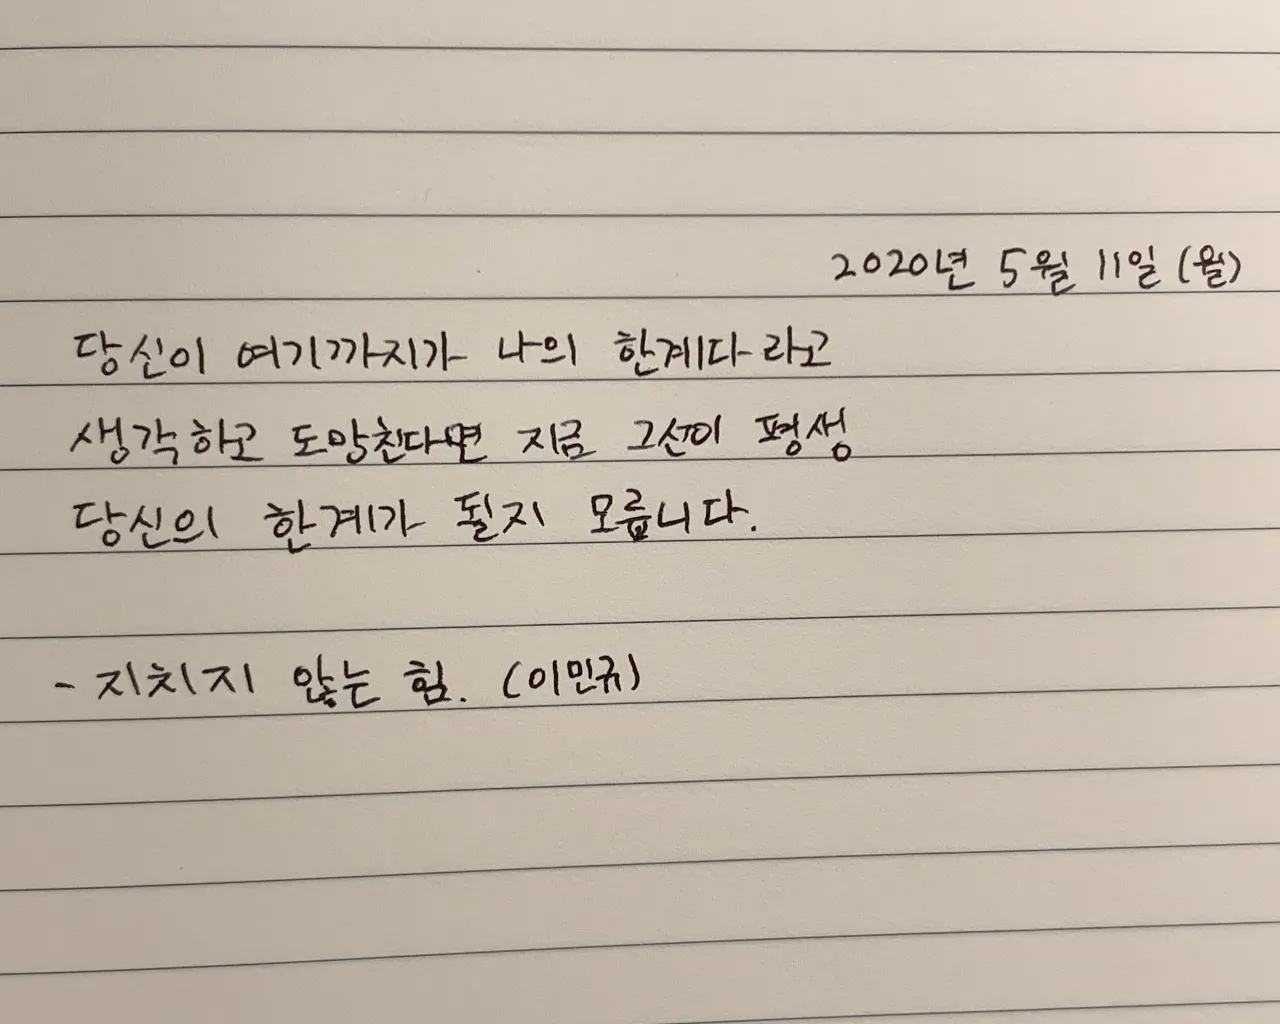 2020년 5월 11일 (월)
당신이 여기까지가 나의 한계다 라고
생각하고 도망친다면 지금 그선이 평생
당신의 한계가 될지 모릅니다.
- 지치지 않는 힘. (이민규)